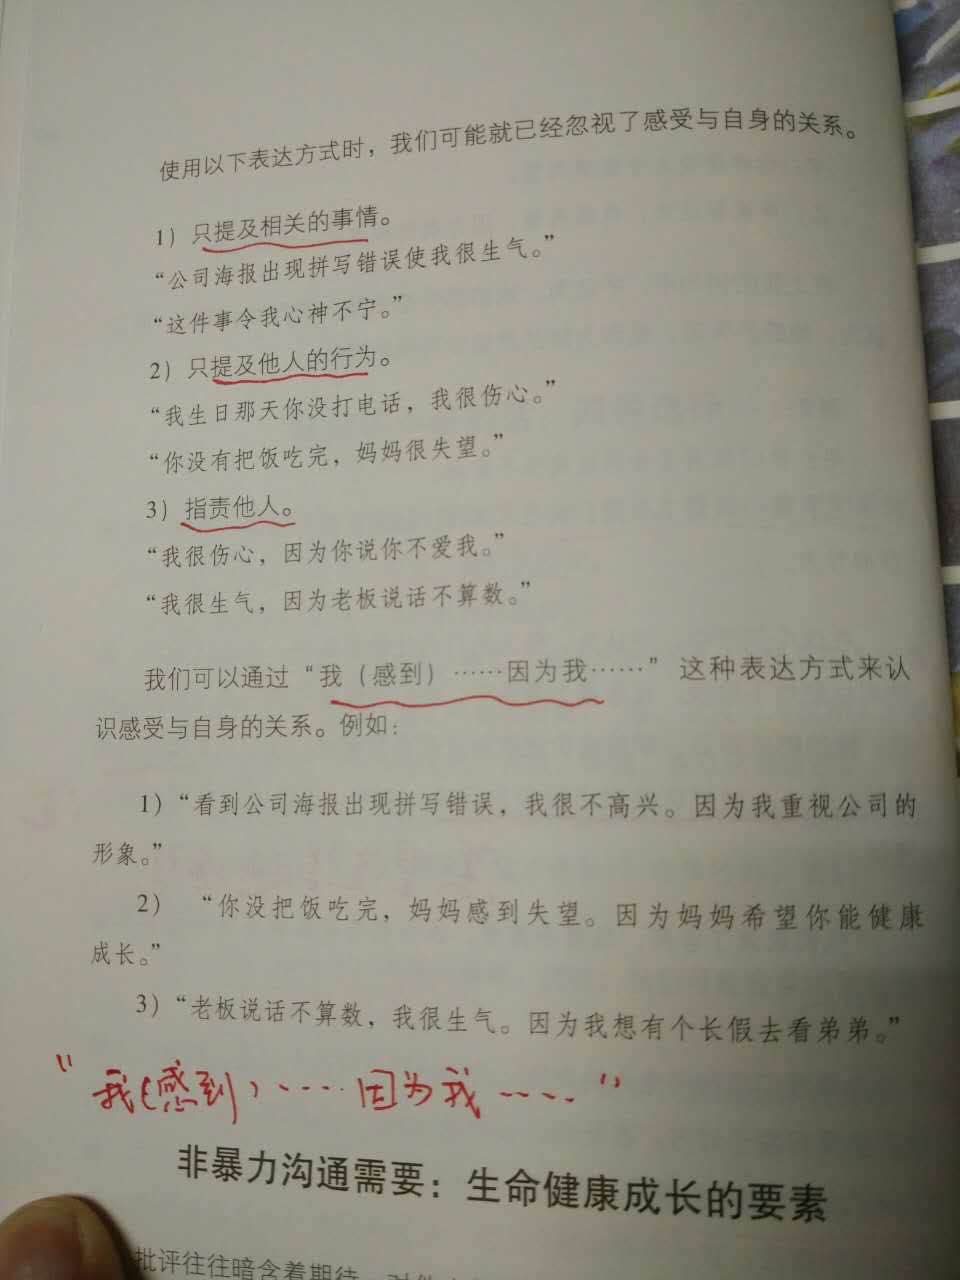 使用以下表达方式时，我们可能就已经忽视了感受与自身的关系。
1）只提及相关的事情。
“公司海报出现拼写错误使我很生气。”
“这件事令我心神不宁。”
2）只提及他人的行为。
“我生日那天你没打电话，我很伤心。”
“你没有把饭吃完，妈妈很失望。”
3）指责他人。
“我很伤心，因为你说你不爱我。”
“我很生气，因为老板说话不算数。”
我们可以通过“我（感到）……因为我……”这种表达方式来认
识感受与自身的关系。例如：
1）“看到公司海报出现拼写错误，我很不高兴。因为我重视公司的
形象。”
2）“你没把饭吃完，妈妈感到失望。因为妈妈希望你能健康
成长。”
3）“老板说话不算数，我很生气。因为我想有个长假去看弟弟。”
“我（感到）……因为我……”
非暴力沟通需要：生命健康成长的要素
批评往往暗含着期待